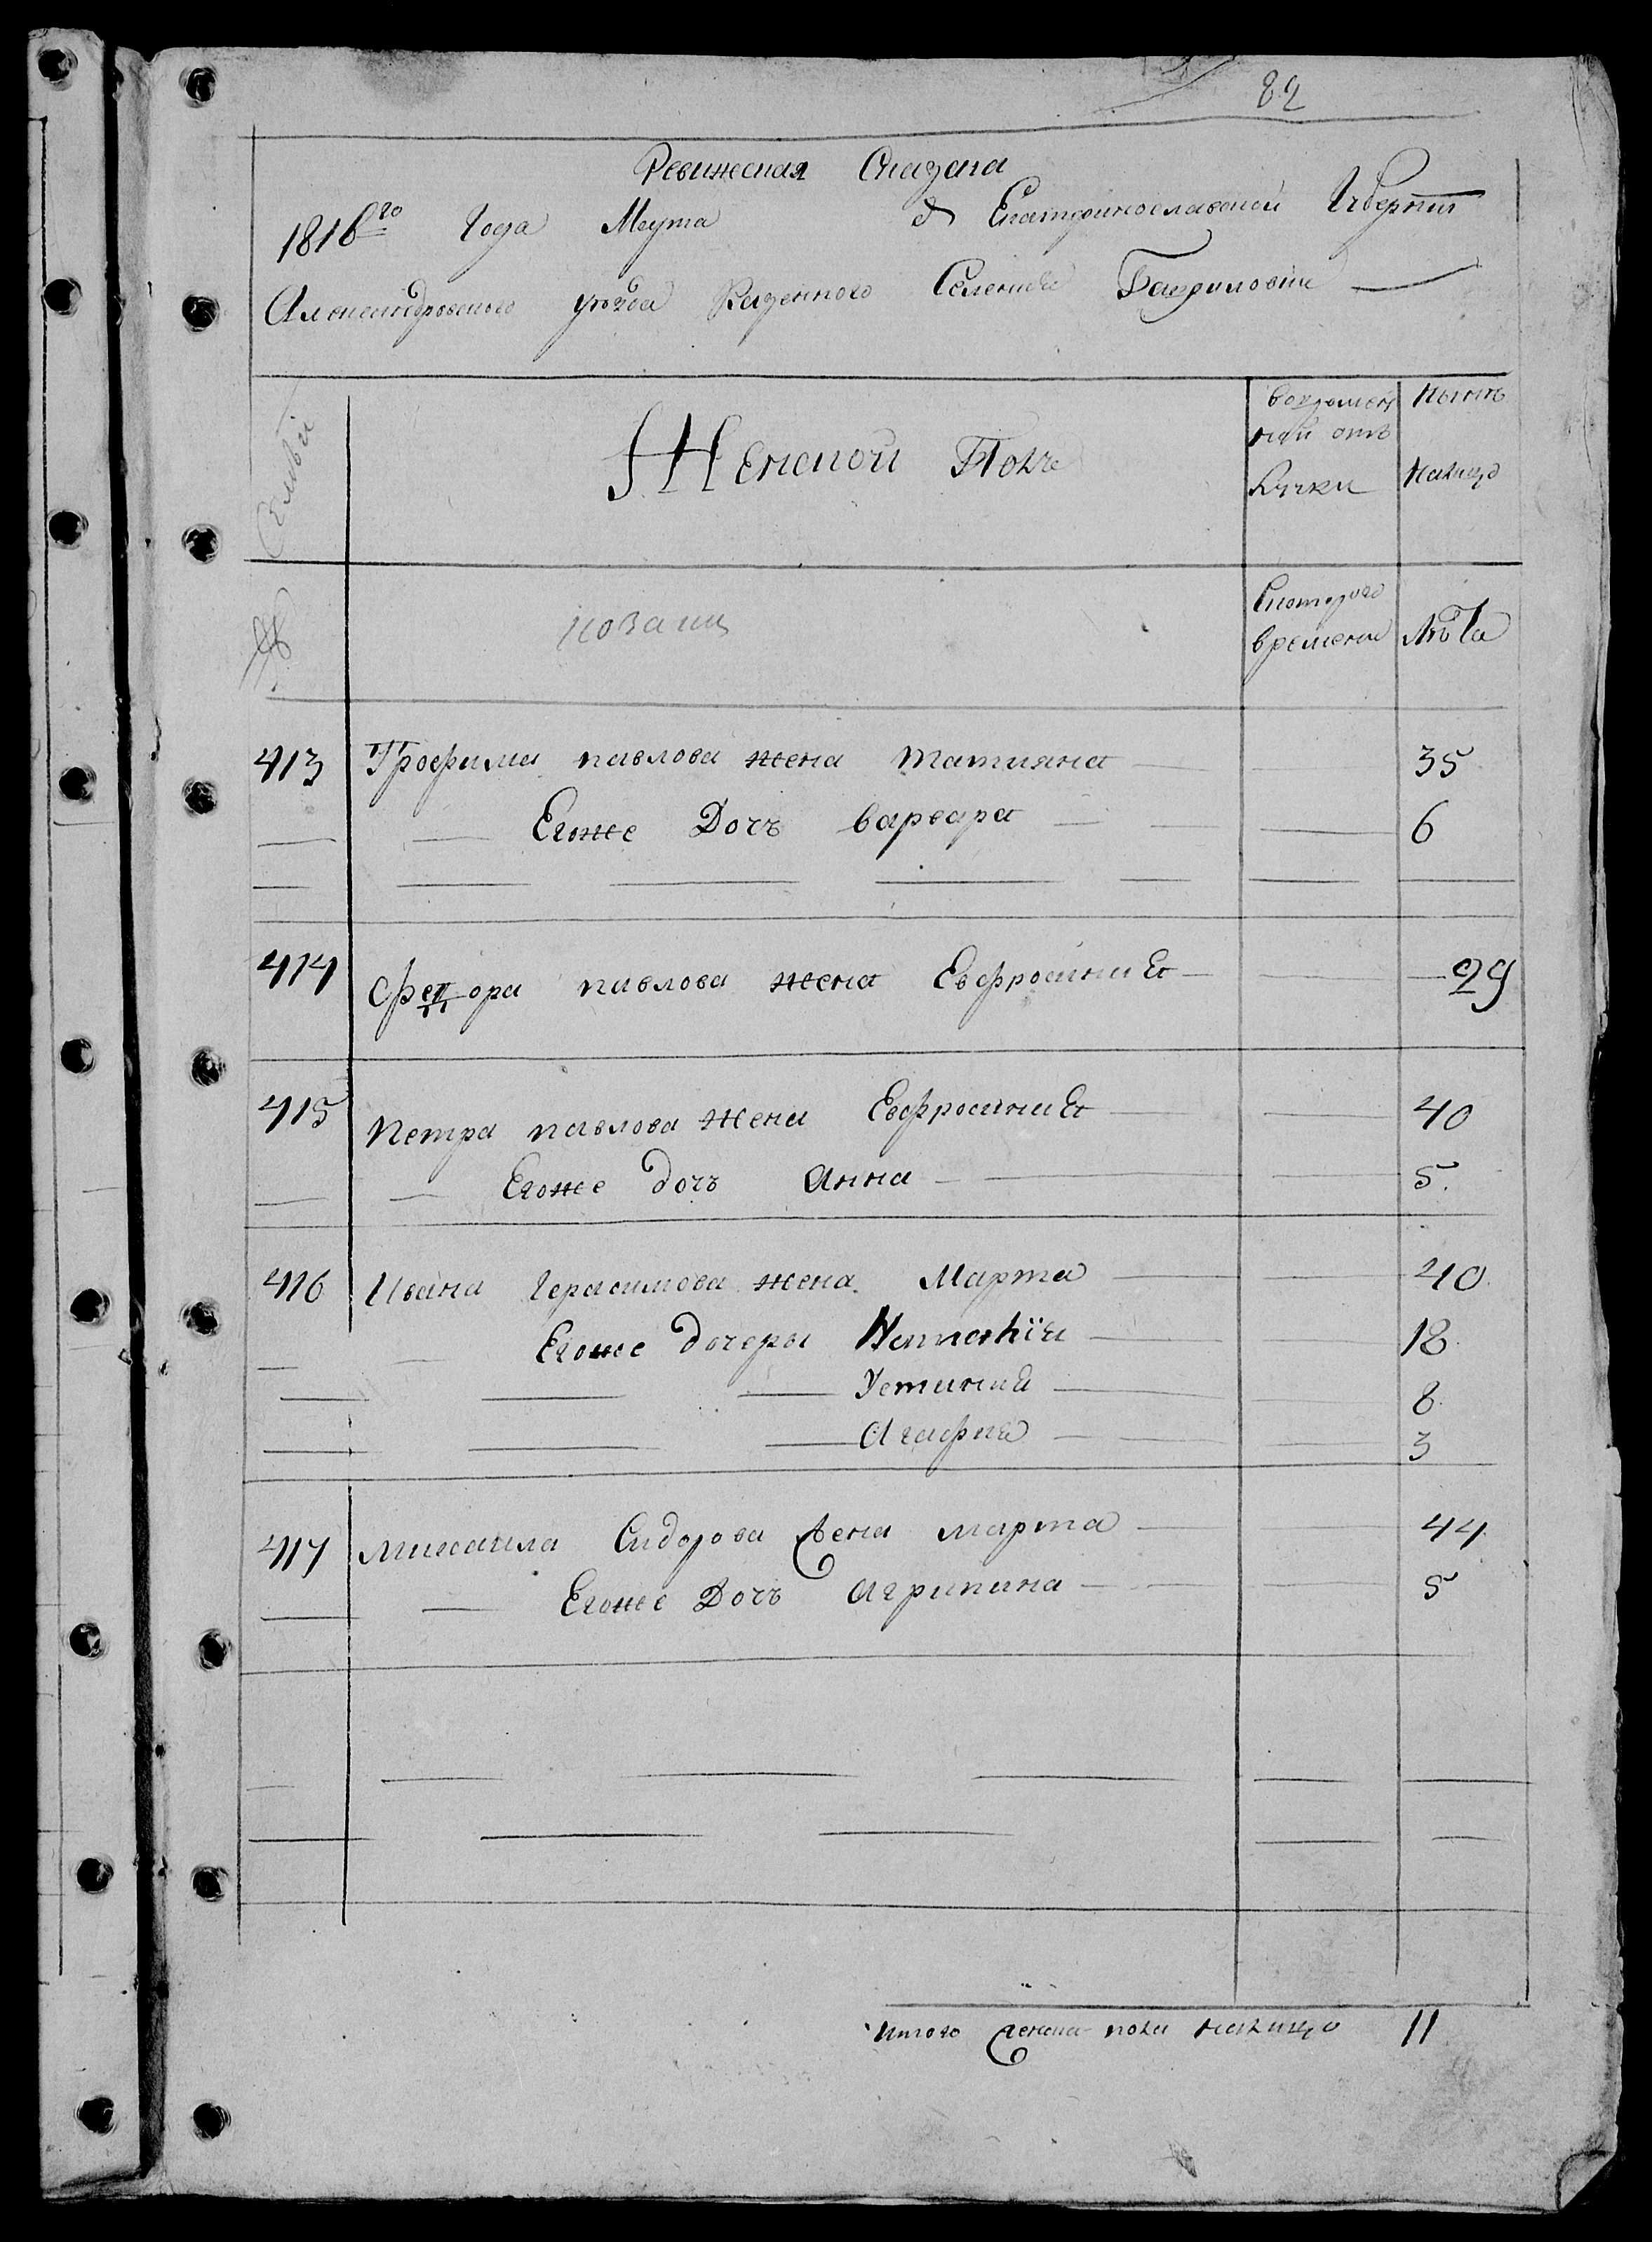 82
Ревижеская Сказака
1816го Года Марта д Екатеринославской Губернии
Александровского уезда Казенного Селения Гавриловки
Семьи
Женской Полъ
во временной отлучки
Ныне налицо
№
казаки
С которого времени
Лѣта
413 Трофима павлова жена татияна 35
Егоже Дочь варвара 6
414 Федора павлова жена Евфросиния 29
415 петра павлова жена Евфросиния 40
Егоже дочь анна 5
416 Ивана Герасимова жена Марта 40
Егоже дочери 18
Устиния 8
Агафия 3
417 михаила Сидорова жена марта 44
Егоже Дочь агрипина 5
итого женска пола налицо 11